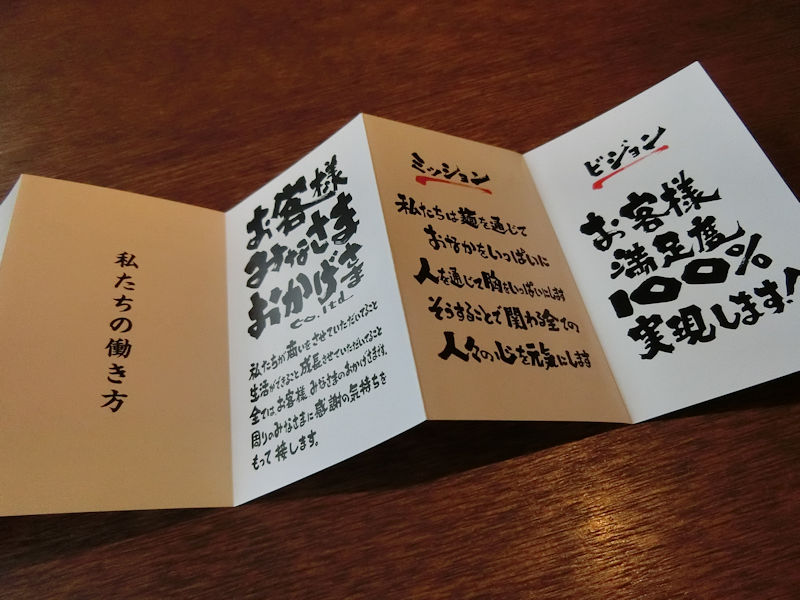 私たちの働き方
お客様
みなさま
おかげさま
co.,ltd.
私たちが商いをさせていただいてること
生活ができること成長させていただいてること
全ては、お客様みなさまのおかげさまです。
周りのみなさまに感謝の気持ちを
もって接します。
ミッション
私たちは麺を通じて
おなかをいっぱいに
人を通じて胸をいっぱいにします
そうすることで関わる全ての
人々の心を元気にします
ビジョン
お客様
満足度
100%
実現します!